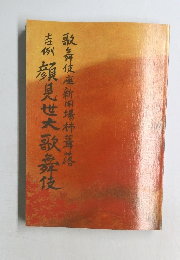 歌舞伎座新開場柿葺落
吉例
顔見世大歌舞伎